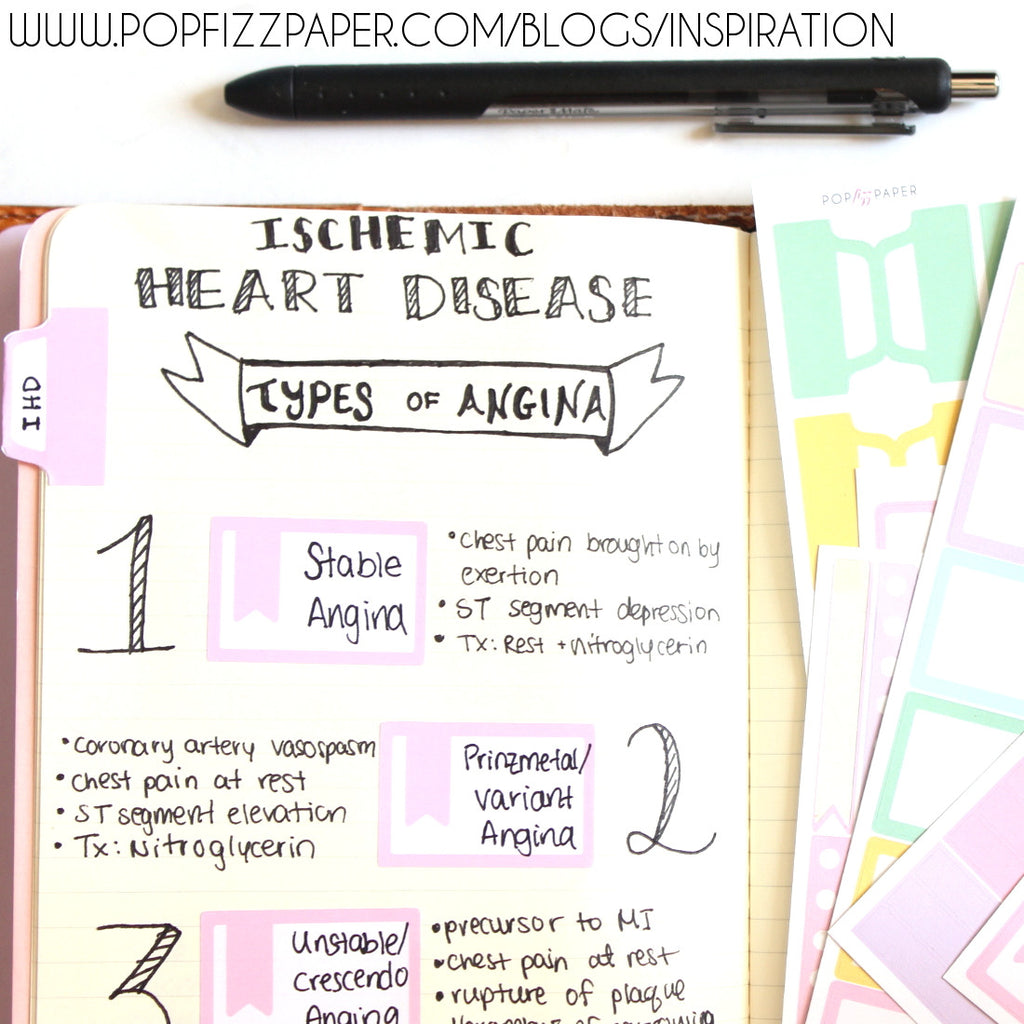 WWW.POPFIZZPAPER.COM/BLOGS/INSPIRATION
Paper Mate
POP fizz PAPER
ISCHEMIC
HEART DISEASE
TYPES OF ANGINA
IHD
1
Stable
Angina
• chest pain brought on by
exertion
• ST segment depression
• Tx: Rest + nitroglycerin
• coronary artery vasospasm
• chest pain at rest
• ST segment elevation
• Tx: Nitroglycerin
Prinzmetal/
variant
Angina
2
3
Unstable/
crescendo
Angina
• precursor to MI
• chest pain at rest
• rupture of plaque